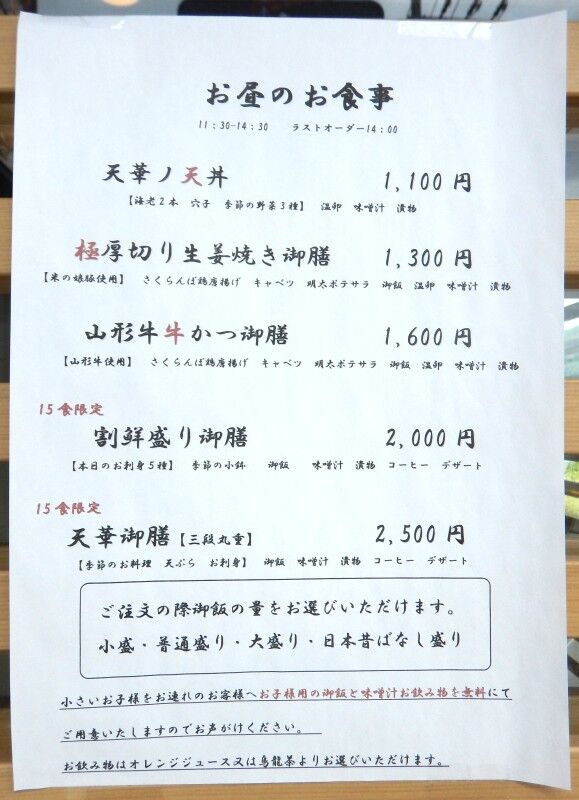 お昼のお食事
11:30-14:30　ラストオーダー14:00
天華ノ天丼　1,100円
【海老2本　穴子　季節の野菜3種】　温卵　味噌汁　漬物
極厚切り生姜焼き御膳　1,300円
【米の娘豚使用】　さくらんぼ鶏唐揚げ　キャベツ　明太ポテサラ　御飯　温卵　味噌汁　漬物
山形牛牛かつ御膳　1,600円
【山形牛使用】　さくらんぼ鶏唐揚げ　キャベツ　明太ポテサラ　御飯　温卵　味噌汁　漬物
15食限定
割鮮盛り御膳　2,000円
【本日のお刺身5種】　季節の小鉢　御飯　味噌汁　漬物　コーヒー　デザート
15食限定
天華御膳【三段丸重】　2,500円
【季節のお料理　天ぷら　お刺身】　御飯　味噌汁　漬物　コーヒー　デザート
ご注文の際御飯の量をお選びいただけます。
小盛・普通盛り・大盛り・日本昔ばなし盛り
小さいお子様をお連れのお客様へお子様用の御飯と味噌汁お飲み物を無料にて
ご用意いたしますのでお声がけください。
お飲み物はオレンジジュース又は烏龍茶よりお選びいただけます。